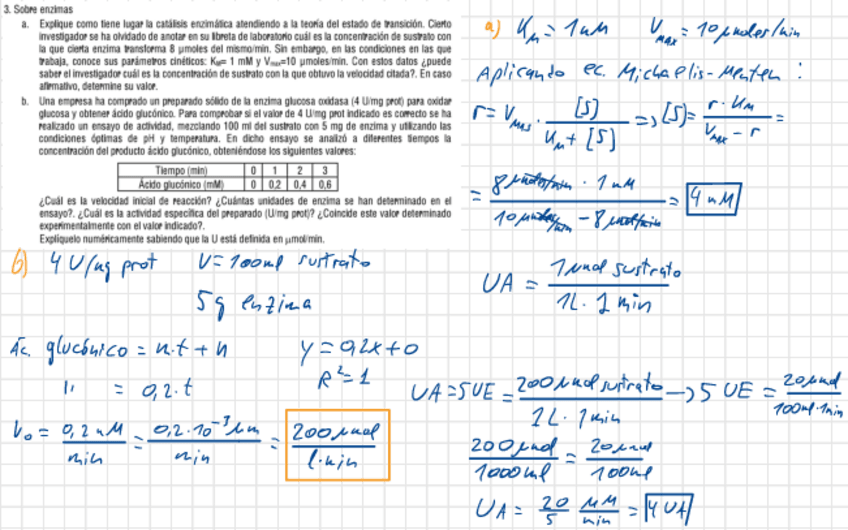 3. Sobre enzimas
a. Explique como tiene lugar la catálisis enzimática atendiendo a la teoría del estado de transición. Cierto
investigador se ha olvidado de anotar en su libreta de laboratorio cuál es la concentración de sustrato con
la que cierta enzima transforma 8 µmoles del mismo/min. Sin embargo, en las condiciones en las que
trabaja, conoce sus parámetros cinéticos: KM= 1 mM y Vmax=10 µmoles/min. Con estos datos ¿puede
saber el investigador cuál es la concentración de sustrato con la que obtuvo la velocidad citada?. En caso
afirmativo, determine su valor.
b. Una empresa ha comprado un preparado sólido de la enzima glucosa oxidasa (4 U/mg prot) para oxidar
glucosa y obtener ácido glucónico. Para comprobar si el valor de 4 U/mg prot indicado es correcto se ha
realizado un ensayo de actividad, mezclando 100 ml del sustrato con 5 mg de enzima y utilizando las
condiciones óptimas de pH y temperatura. En dicho ensayo se analizó a diferentes tiempos la
concentración del producto ácido glucónico, obteniéndose los siguientes valores:
Tiempo (min) 0 1 2 3
Ácido glucónico (mM) 0 0,2 0,4 0,6
¿Cuál es la velocidad inicial de reacción? ¿Cuántas unidades de enzima se han determinado en el
ensayo?. ¿Cuál es la actividad especifica del preparado (U/mg prot)? ¿Coincide este valor determinado
experimentalmente con el valor indicado?.
Explíquelo numéricamente sabiendo que la U está definida en µmol/min.
a) KM = 1 mM VMAX = 10 µmoles/min
Aplicando ec. Michaelis-Menten :
r = Vmax · [S] / KM + [S] => [S] = r · KM / VMAX - r =
= 8 µmoles/min · 1 mM / 10 µmoles/min - 8 µmol/min = 4 mM
b) 4 U/mg prot V = 100ml sustrato
5g enzima
UA = 1 µmol sustrato / 1L · 1 min
Ác. glucónico = m·t + n y = 0,2x + 0
" = 0,2·t R² = 1
UA = 5UE = 200 µmol sustrato / 1L · 1 min -> 5 UE = 20 µmol / 100ml · 1min
V0 = 0,2 mM / min = 0,2·10⁻³ M / min = 200 µmol / l·min
200 µmol / 1000 ml = 20 µmol / 100ml
UA = 20 / 5 µM / min = 4 UA